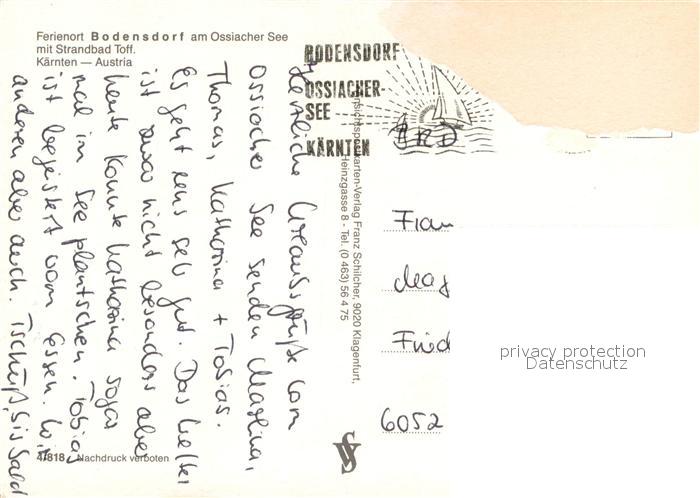 Ferienort Bodensdorf am Ossiacher See
mit Strandbad Toff.
Kärnten — Austria
BODENSDORF
OSSIACHER-
SEE
KÄRNTEN
BRD
Herzliche Urlaubsgrüße vom
Ossiacher See senden Martina,
Thomas, Katharina + Tobias.
Es geht uns seh gut. Das Wetter
ist zwar nicht besonders aber
heute konnte Katharina sogar
mal im See plantschen. Tobias
ist begeistert vom Essen. Wir
anderen aber auch. Tschüß, bis bald
Ansichtspostkarten-Verlag Franz Schilcher, 9020 Klagenfurt,
Heinzgasse 8 - Tel. (0 463) 56 4 75
Frau
6052
4/818
Nachdruck verboten
privacy protection
Datenschutz